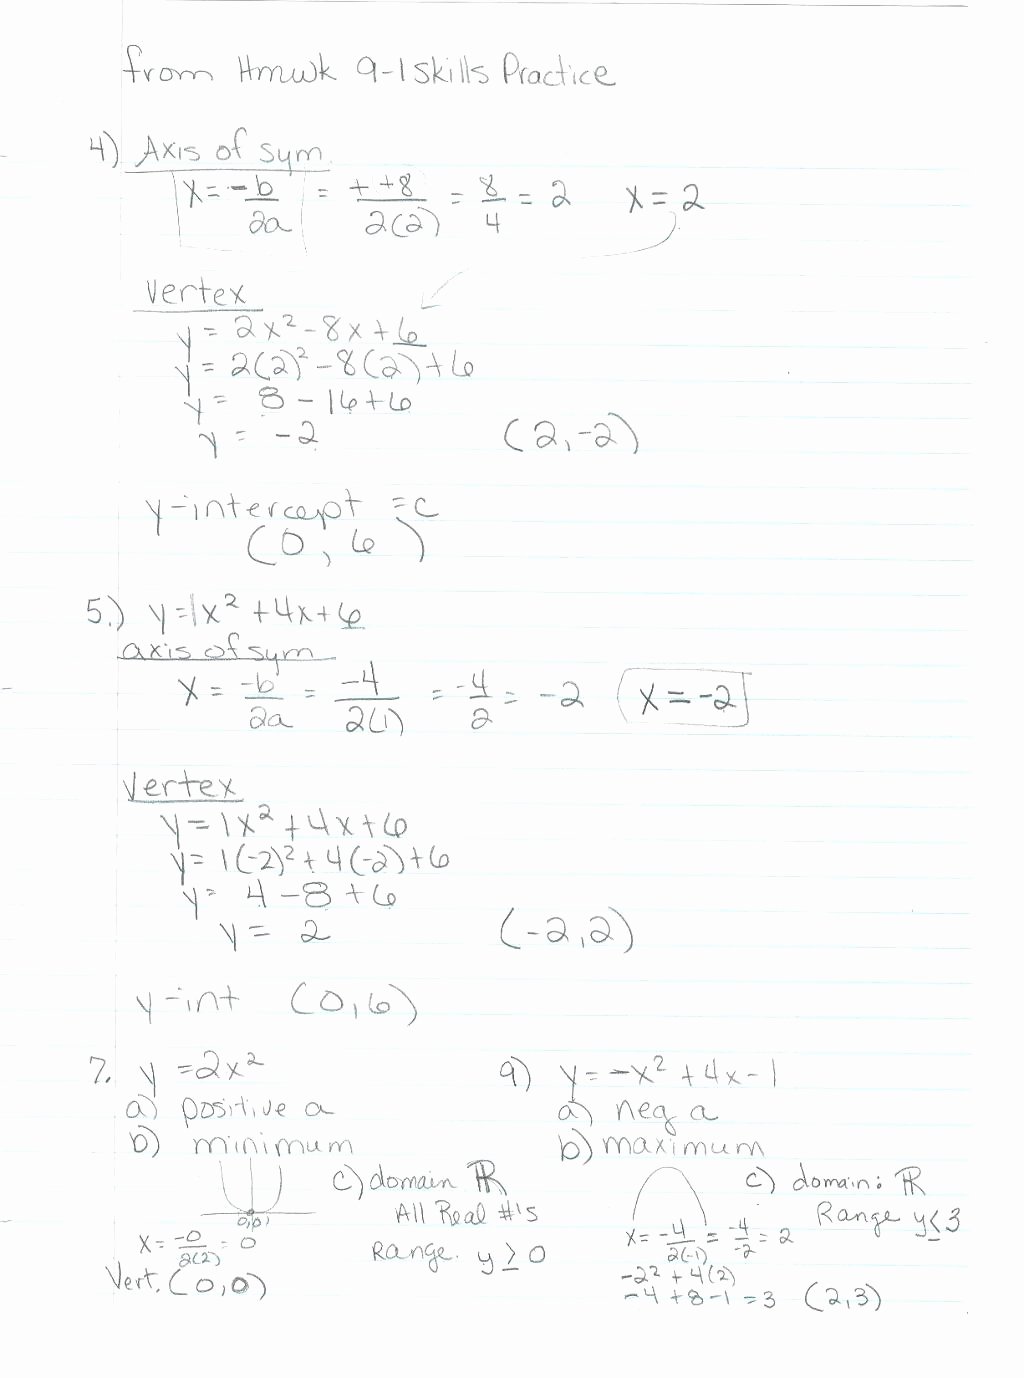 from Hmwk 9-1 Skills Practice
4) Axis of sym.
x = -b/2a = + +8/2(2) = 8/4 = 2 x = 2
Vertex
y = 2x² - 8x + 6
y = 2(2)² - 8(2) + 6
y = 8 - 16 + 6
y = -2 (2, -2)
y-intercept = c
(0, 6)
5.) y = 1x² + 4x + 6
axis of sym
x = -b/2a = -4/2(1) = -4/2 = -2 x = -2
Vertex
y = 1x² + 4x + 6
y = 1(-2)² + 4(-2) + 6
y = 4 - 8 + 6
y = 2 (-2, 2)
y-int (0, 6)
7. y = 2x²
a) positive a
b) minimum
c) domain ℝ
All Real #'s
Range. y ≥ 0
(0,0)
x = -0/2(2) = 0
Vert. (0, 0)
9) y = -x² + 4x - 1
a) neg a
b) maximum
c) domain: ℝ
Range y ≤ 3
x = -4/2(-1) = -4/-2 = 2
-2² + 4(2)
-4 + 8 - 1 = 3 (2, 3)